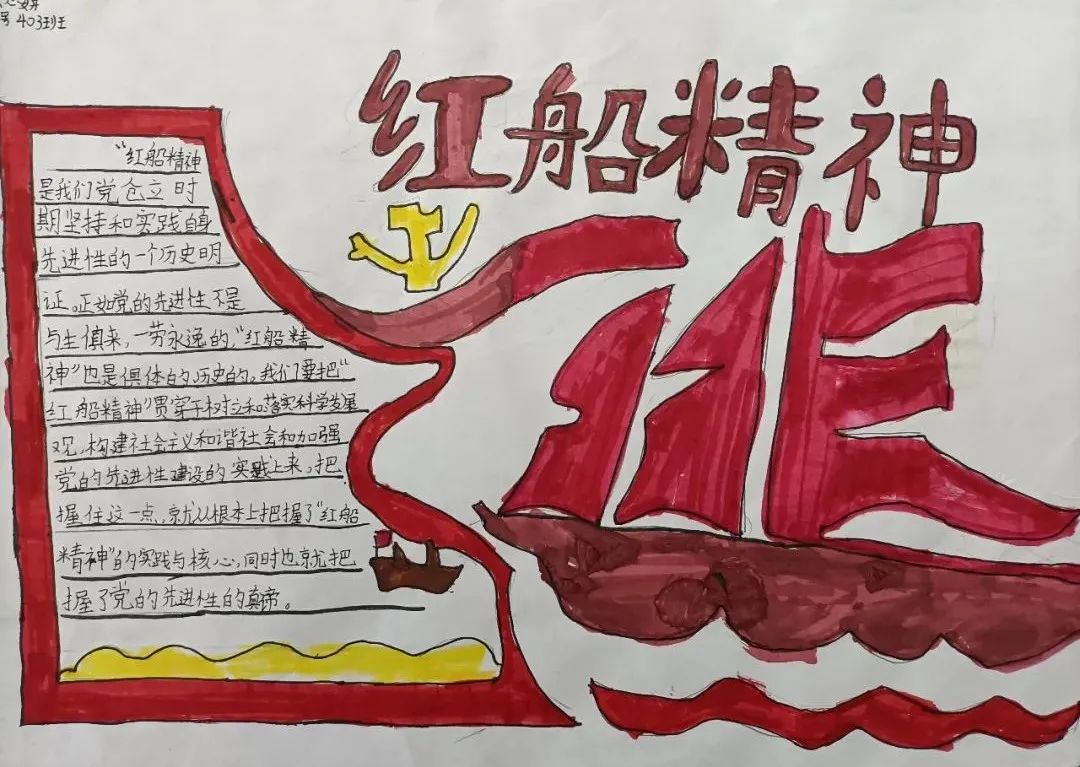 号 403班
红船精神
“红船精神
是我们党仓立时
期坚持和实践自身
先进性的一个历史明
证。正如党的先进性不是
与生俱来,一劳永逸的,“红船精
神”也是俱体的历史的。我们要把“
红船精神”贯穿于树立和落实科学发展
观,构建社会主义和谐社会和加强
党的先进性建设的实践上来,把
握住这一点,就从根本上把握了“红船
精神”的实践与核心,同时也就把
握了党的先进性的真谛。